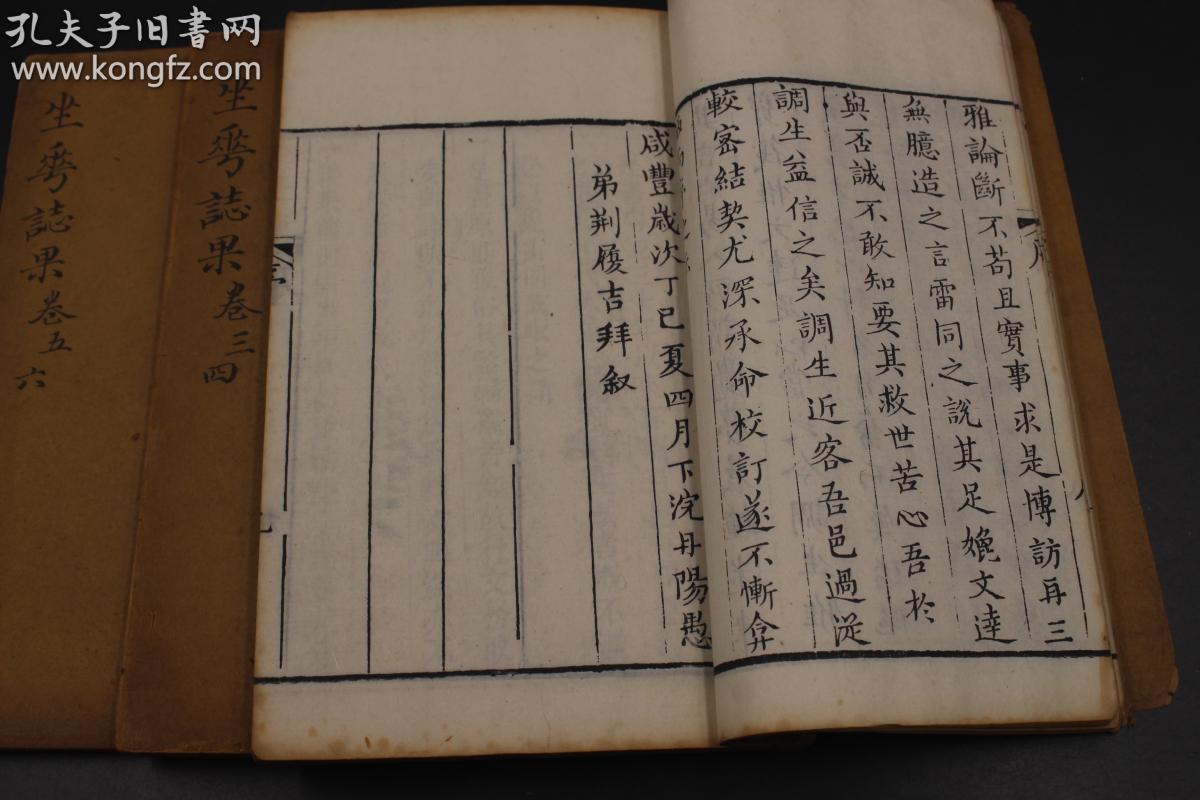 孔夫子旧书网
www.kongfz.com
雅論斷不苟且實事求是博訪再三
無臆造之言雷同之說其足媲文達
與否誠不敢知要其救世苦心吾於
調生益信之矣調生近客吾邑過從
較密結契尤深承命校訂遂不慚弇
咸豐歲次丁巳夏四月下浣丹陽愚
弟荊履吉拜敘
坐花誌果卷三四
坐花誌果卷五六